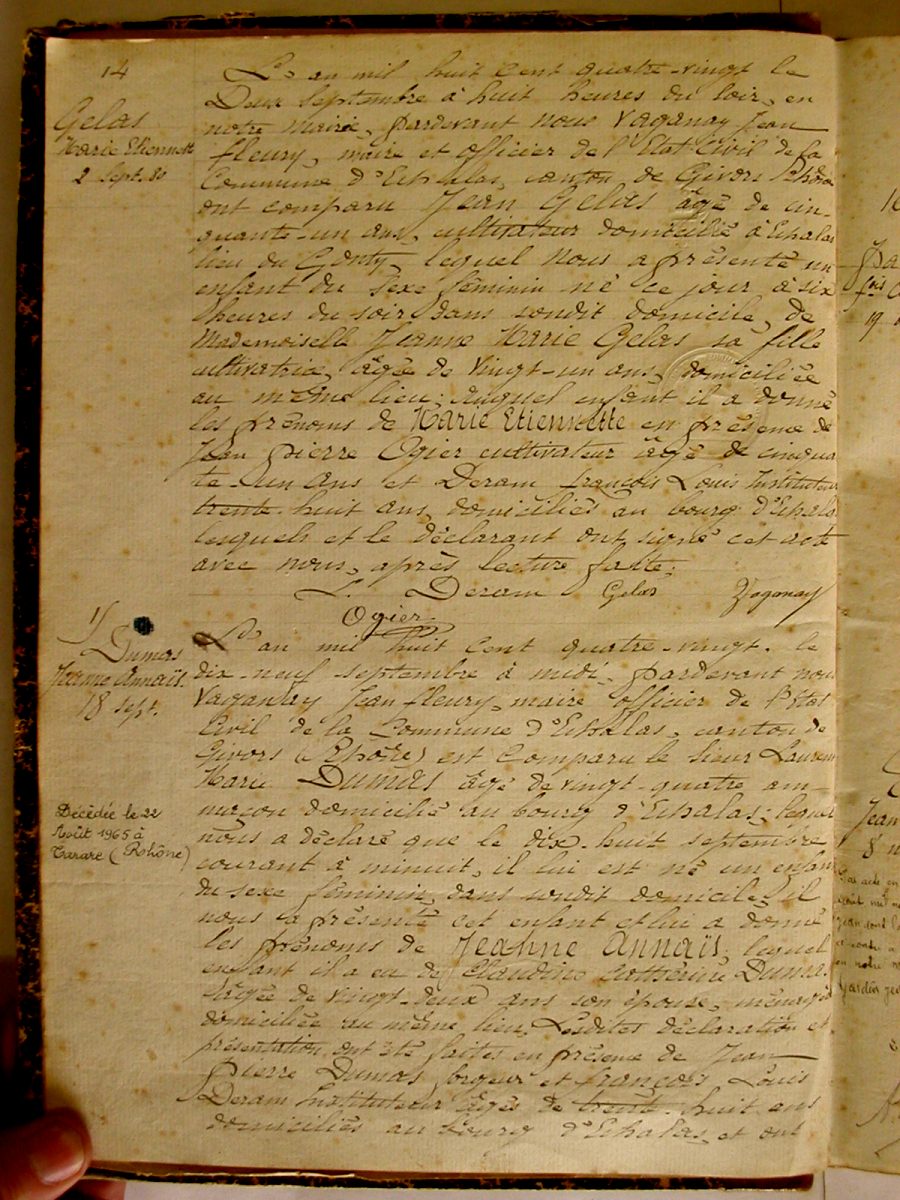 14
Gelas
Marie Etiennette
2 Sept. 80
L'an mil huit cent quatre-vingt le
Deux Septembre à huit heures du soir, en
notre mairie, pardevant nous Vaganay Jean
fleury, maire et officier de l'Etat Civil de la
Commune d'Echalas, canton de Givors Rhône
ont comparu Jean Gelas âgé de cin-
quante-un ans, cultivateur domicilié à Echalas
lieu du Gonty, lequel nous a présenté un
enfant du Sexe féminin né ce jour à six
heures du soir dans sondit domicile, de
Mademoiselle Jeanne Marie Gelas sa fille
cultivatrice, âgée de vingt-un ans, domiciliée
au même lieu; auquel enfant il a donné
les prénoms de Marie Etiennette en présence de
Jean pierre Ogier cultivateur âgé de cinquan
te-un ans et Deram françois Louis Instituteur
trente huit ans, domiciliés au bourg d'Echalas
lesquels et le déclarant ont signé cet acte
avec nous, après lecture faite.
L. Deram Gelas Vaganay
Ogier
15
Dumas
Jeanne Annaïs.
18 sept.
L'an mil huit cent quatre-vingt. le
dix-neuf septembre à midi, pardevant nous
Vaganay Jean fleury, maire officier de l'Etat
Civil de la Commune d'Echalas, canton de
Givors (Rhône) est comparu le sieur Laurent
Marie Dumas âgé de vingt-quatre ans
maçon domicilié au bourg d'Echalas, lequel
nous a déclaré que le dix-huit septembre
courant à minuit, il lui est né un enfant
du sexe féminin, dans sondit domicile, il
nous a présenté cet enfant et lui a donné
les prénoms de Jeanne Annaïs, lequel
enfant il a eu de Claudine Catherine Dumas
âgée de vingt-deux ans son épouse, ménagère
domiciliée au même lieu. Lesdites déclaration et
présentation ont été faites en présence de Jean
Pierre Dumas forgeur et françois Louis
Deram Instituteur âgés de trente-huit ans
domiciliés au bourg d'Echalas, et ont
Décédée le 22
Août 1965 à
Tarare (Rhône)
19
Jean
8